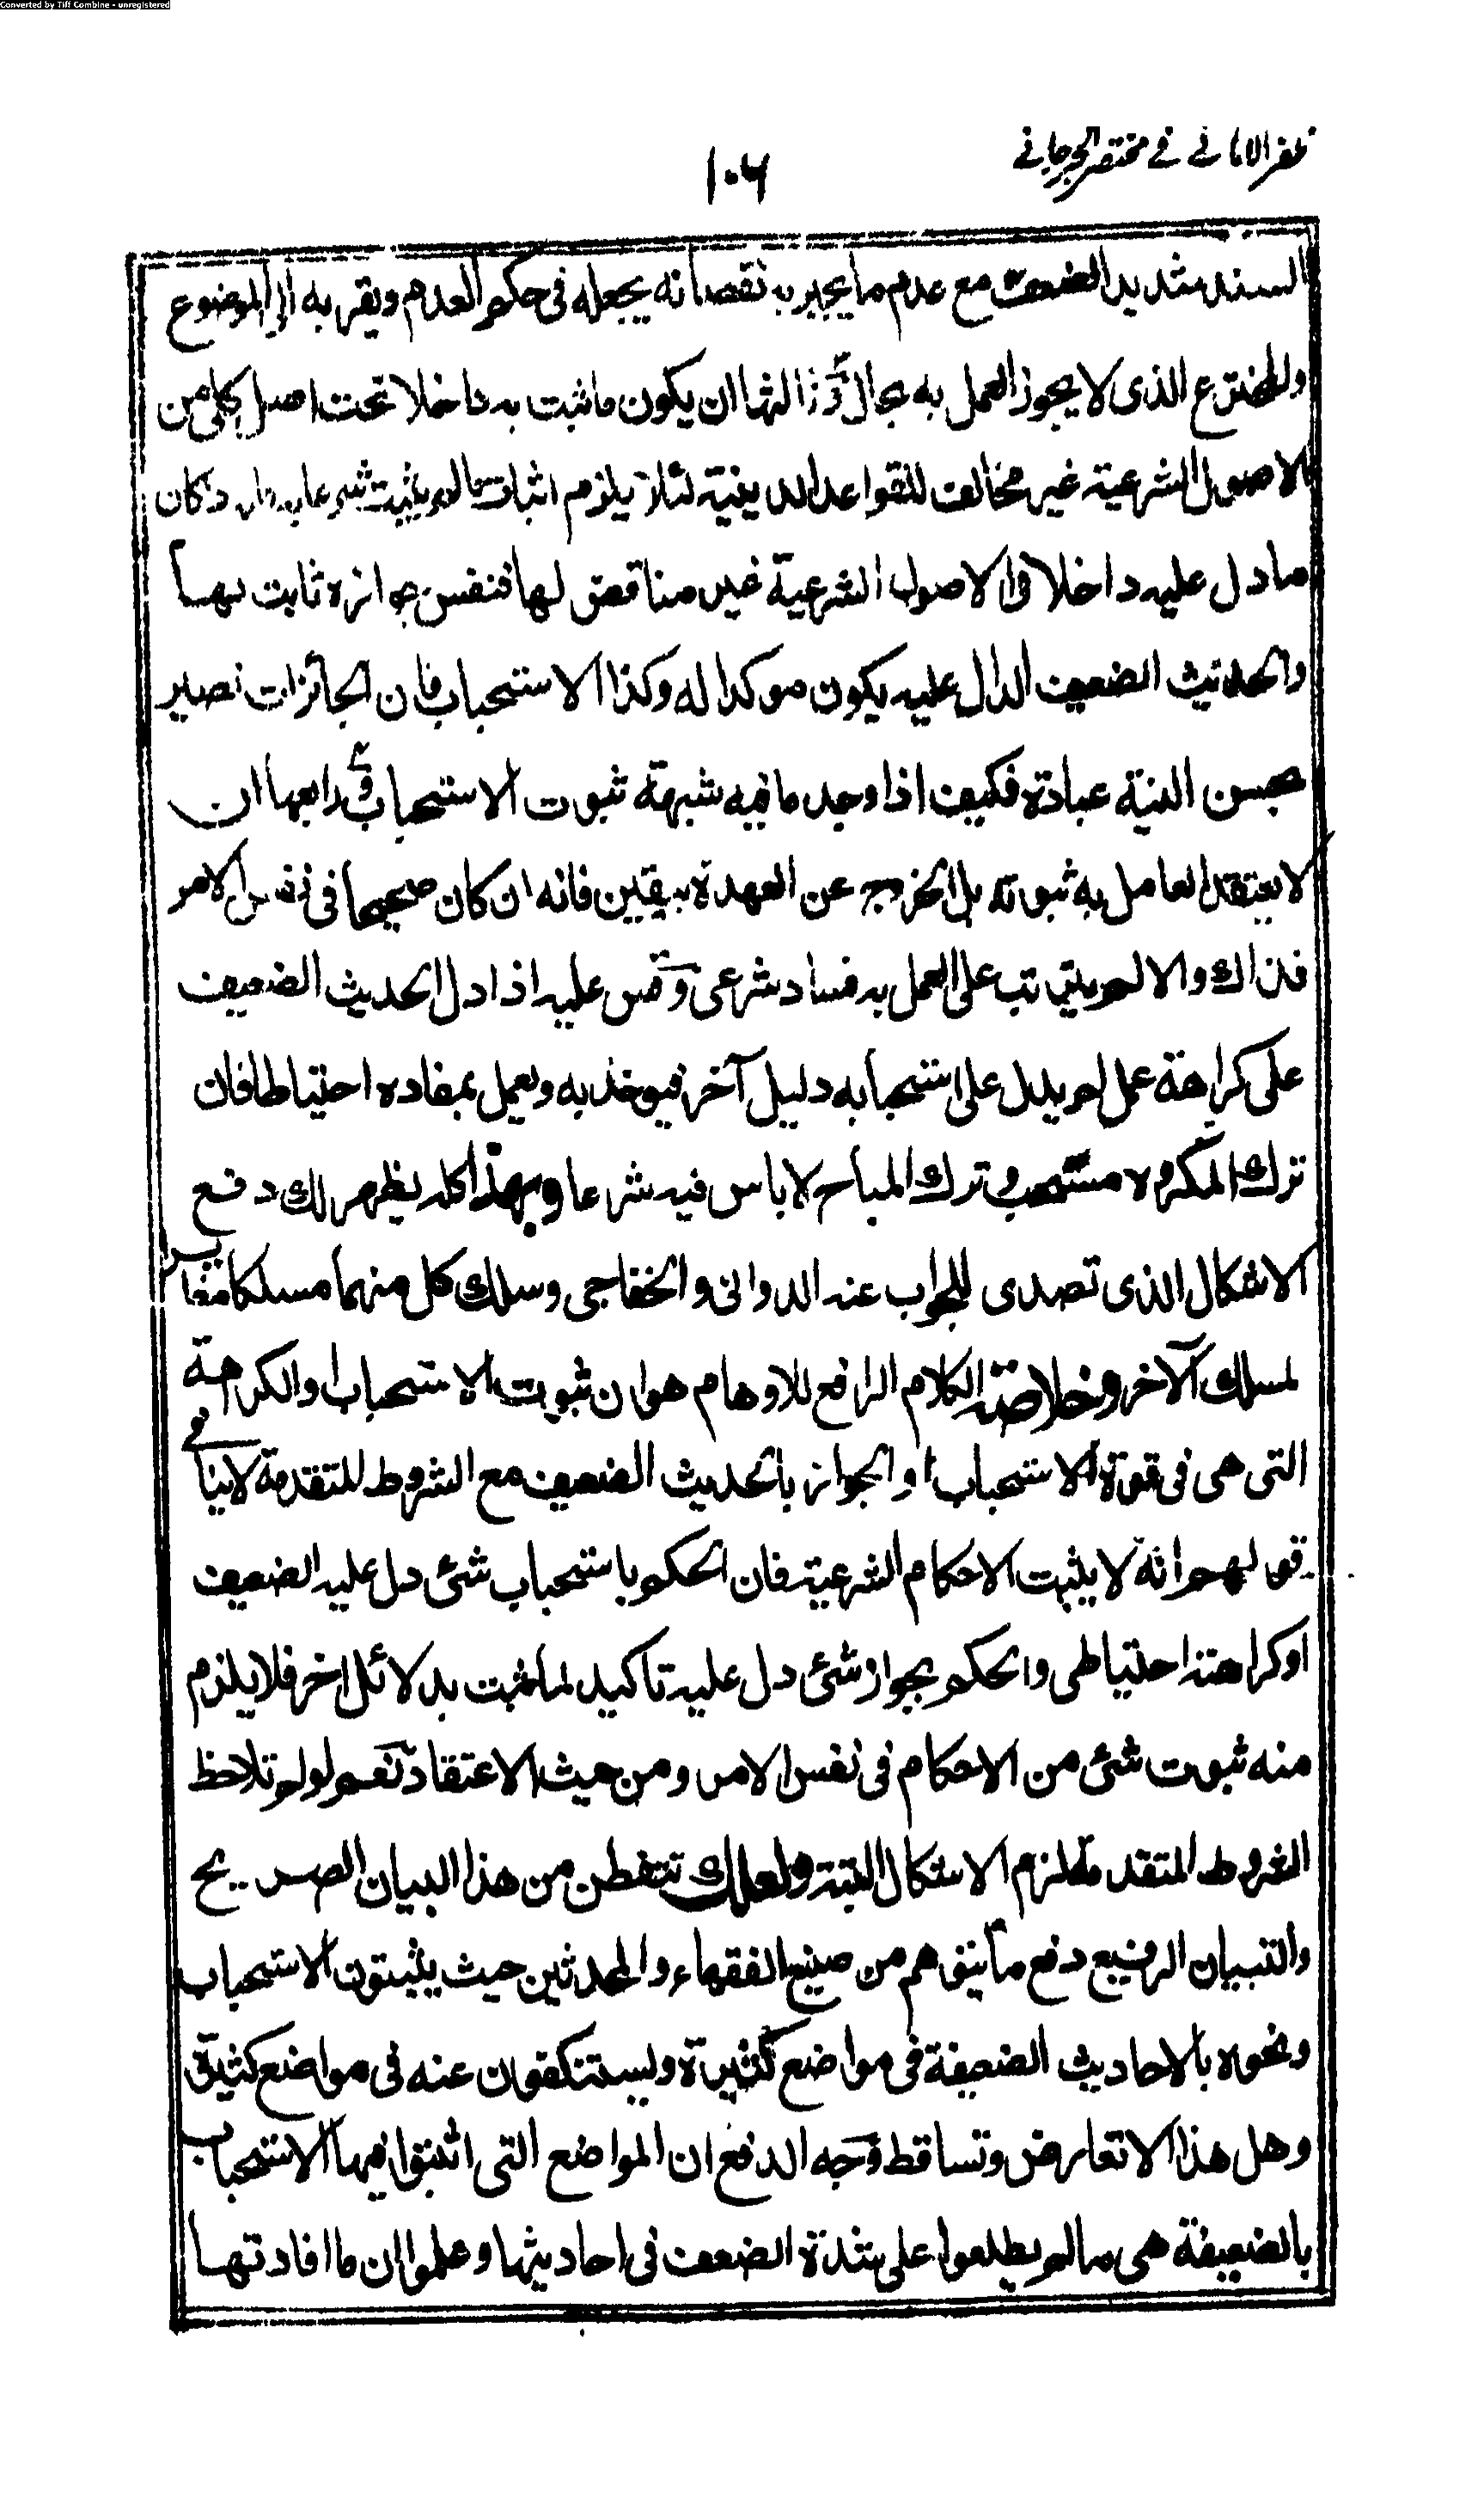 Converted by Tiff Combine - unregistered
ظفر الامانی فی مختصر الجرجانی
۱۰۶
السند شديد الضعف مع عدم ما يجبر به نقصانه يجعله فی حكم العدم ويقربه الى الموضوع
والمخترع الذی لا يجوز العمل به بحال و ثالثها ان يكون ما ثبت به داخلا تحت اصل كلی من
الاصول الشرعية غير مخالف للقواعد الدينية لئلا يلزم اثبات مالم يثبت شرعا به كان
ما دل عليه داخلا فی الاصول الشرعية غير مناقض لها فنفس جوازه ثابت بها
والحديث الضعيف الدال عليه يكون موكدا له وكذا الاستحباب فان الجائزات تصير
بحسن النية عبادة فكيف اذا وجد ما فيه شبهة ثبوت الاستحباب و رابعها ان
لا يعتقد العامل به ثبوته بل الخروج عن العهدة بيقين فانه ان كان صحيحا فی نفس الامر
فذاك والا لم يترتب على العمل به فساد شرعی وقس عليه اذا دل الحديث الضعيف
على كراهة عمل لم يدل على استحبابه دليل آخر فيوخذ به ويعمل بمفاده احتياطا فان
ترك المكروه مستحب وترك المباح لا باس فيه شرعا وبهذا كله يظهر لك دفع
الاشكال الذی تصدى للجواب عنه الدوانی والخفاجی وسلك كل منهما مسلكا مغايرا
لمسلك الآخر وخلاصة الكلام الرافع للاوهام هو ان ثبوت الاستحباب او الكراهة
التی هی فی قوة الاستحباب او الجواز بالحديث الضعيف مع الشروط المتقدمة لا ينافی
قولهم انه لا يثبت الاحكام الشرعية فان الحكم باستحباب شئ دل عليه الضعيف
او كراهته احتياطی والحكم بجواز شئ دل عليه تاكيد لما ثبت بدلائل اخر فلا يلزم
منه ثبوت شئ من الاحكام فی نفس الامر ومن حيث الاعتقاد نعم لو لم تلاحظ
الشروط المتقدمة لزم الاشكال البتة ولعلك تتفطن من هذا البيان الصريح
والتبيان الرفيع دفع ما يتوهم من صنيع الفقهاء والمحدثين حيث يثبتون الاستحباب
ونحوه بالاحاديث الضعيفة فی مواضع كثيرة ويستنكفون عنه فی مواضع كثيرة
وهل هذا الا تعارض وتساقط وجه الدفع ان المواضع التی اثبتوا فيها الاستحباب
بالضعيفة هی مالم يطلعوا على شدة الضعف فی احاديثها وعلموا ان ما افادتها